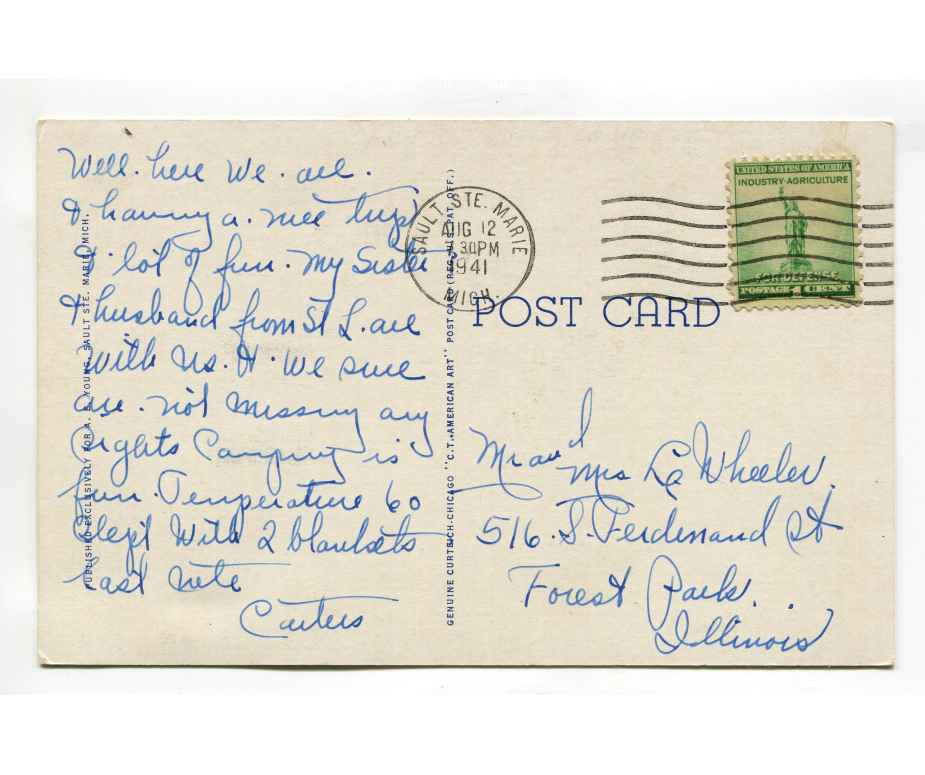 Well. here We. are.
& having a. nice trip
& lot of fun. My Sister
& husband from St L. are
With Us. & We sure
are. not missing any
Sights Camping is
fun. Temperature 60
Slept With 2 blankets
Last nite
Carters
PUBLISHED EXCLUSIVELY FOR A. E. YOUNG, SAULT STE. MARIE, MICH.
GENUINE CURTEICH-CHICAGO "C.T. AMERICAN ART" POST CARD (REG. U.S. PAT. OFF.)
SAULT STE. MARIE
AUG 12
7 30PM
1941
MICH.
UNITED STATES OF AMERICA
INDUSTRY AGRICULTURE
FOR DEFENSE
POSTAGE 1 CENT
POST CARD
Mr and Mrs La Wheeler.
516. S. Ferdinand St
Forest Park.
Illinois